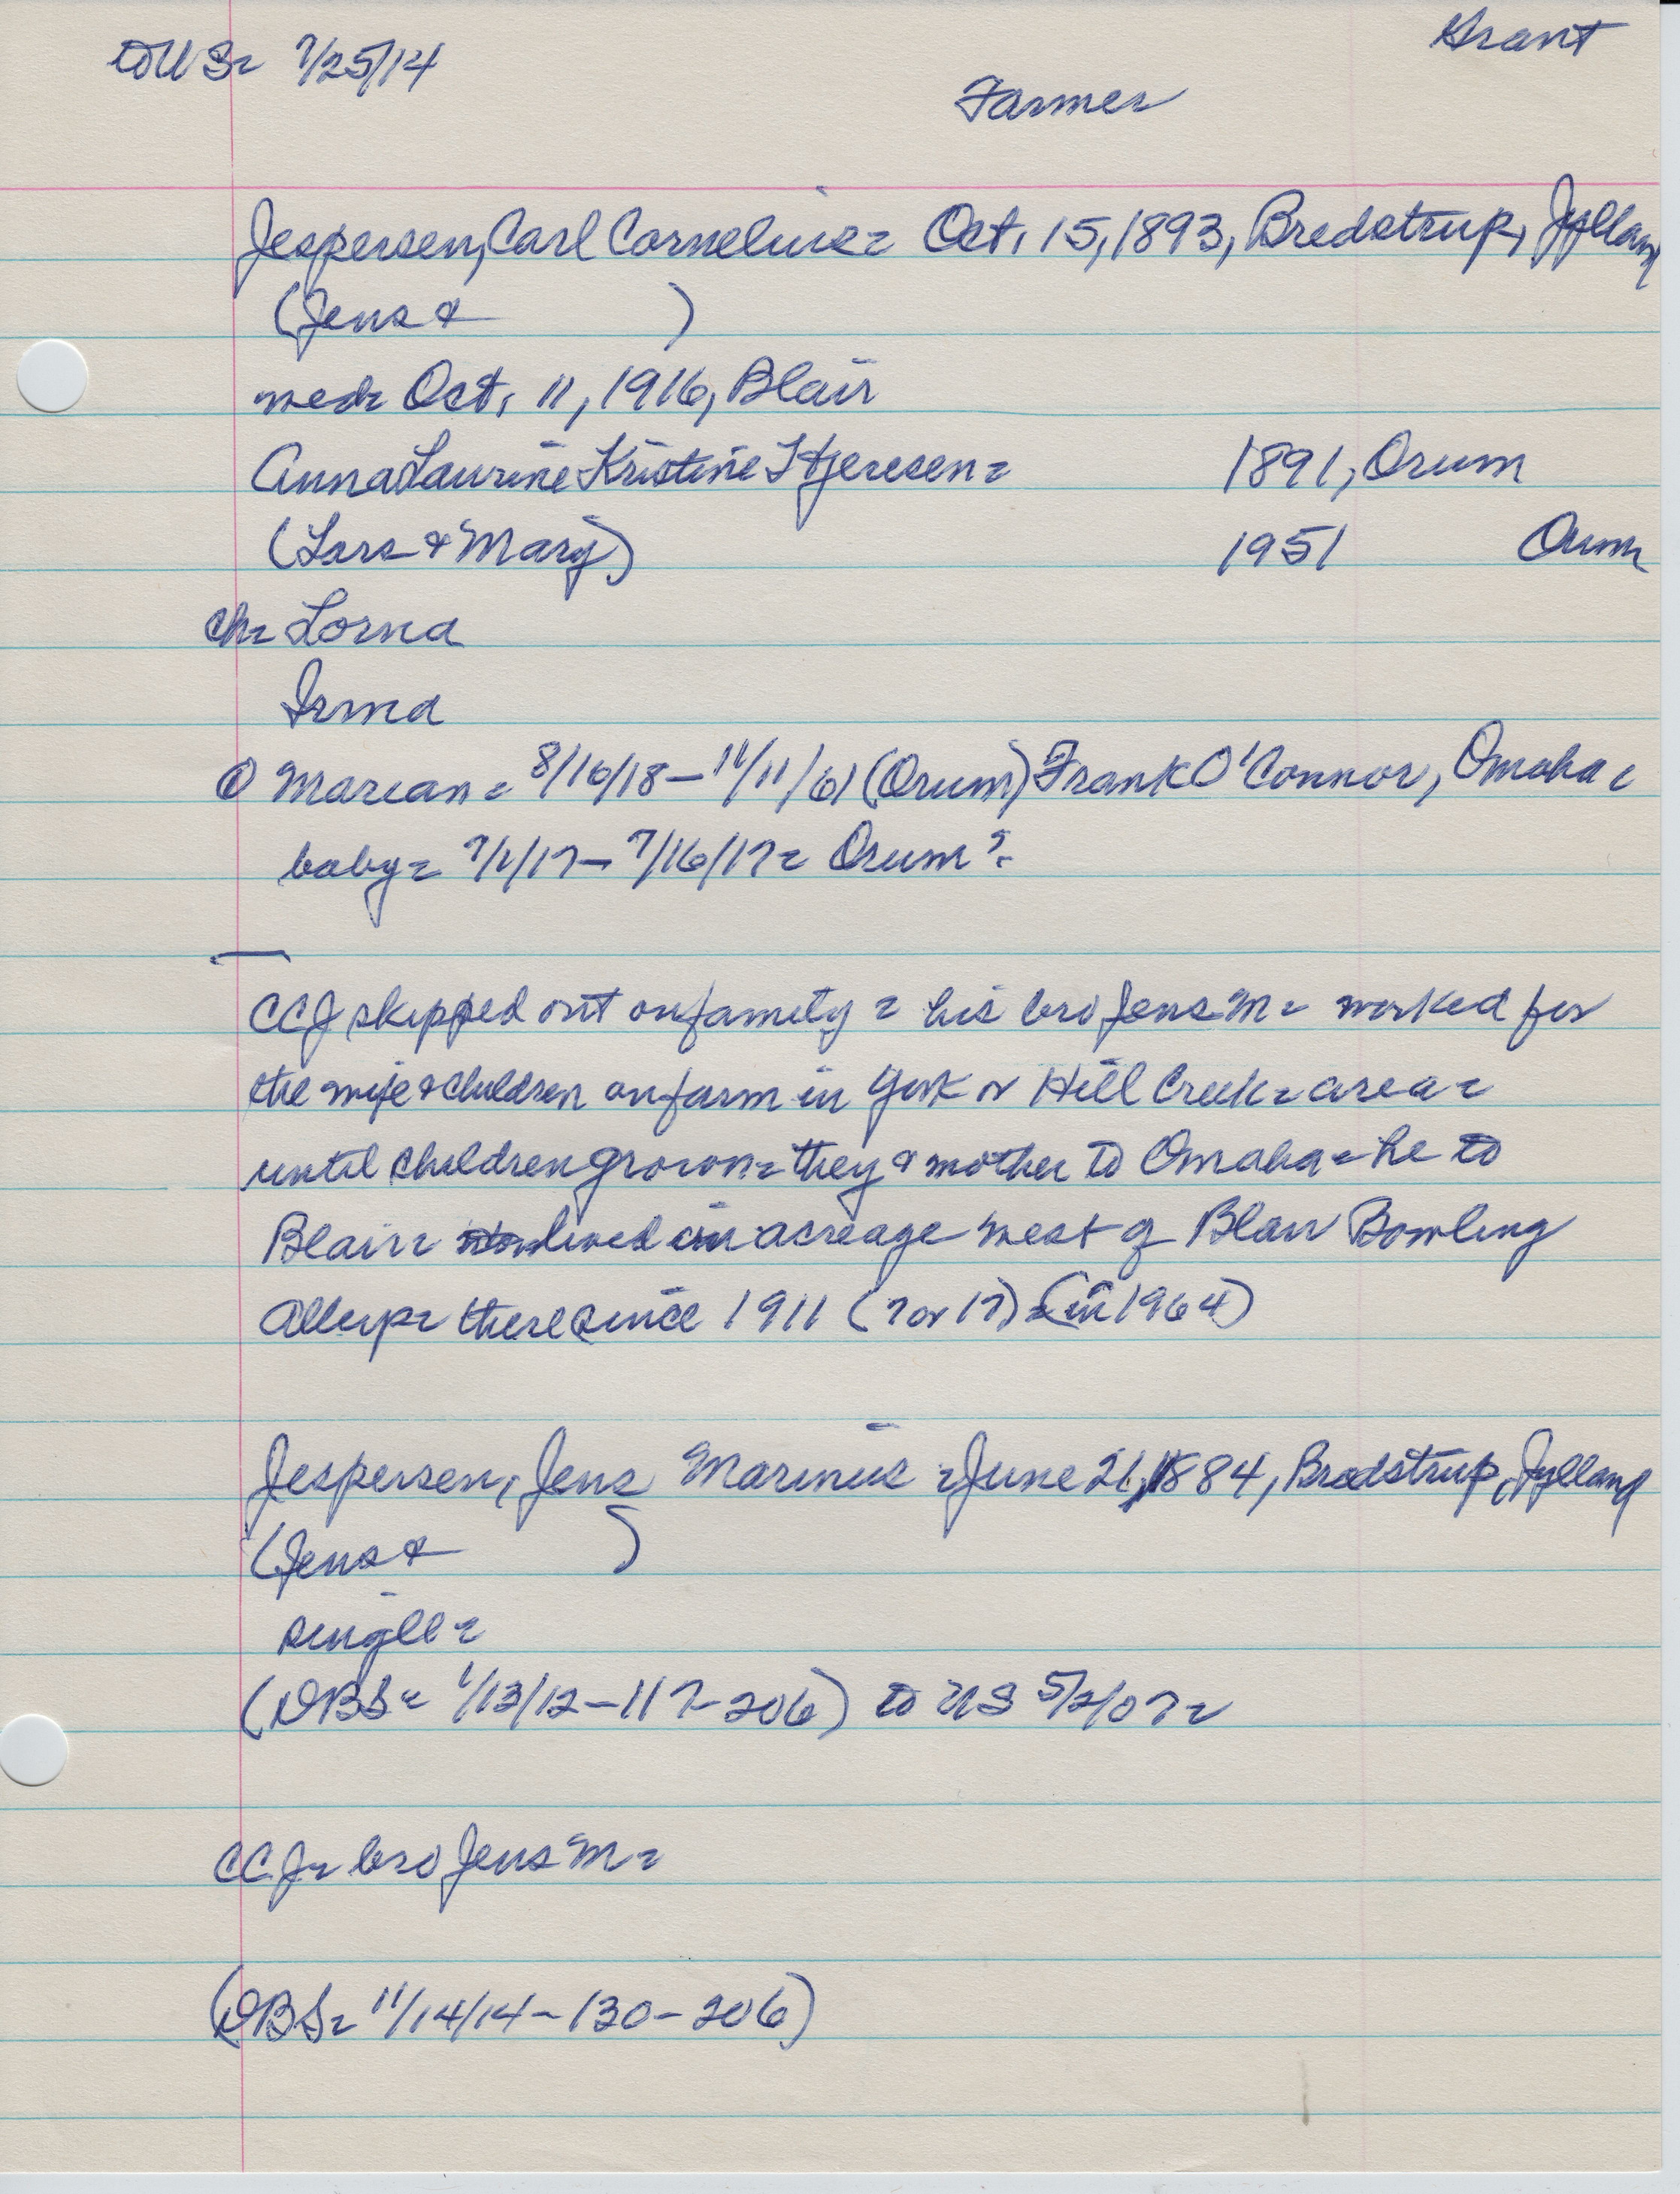 to US= 7/25/14
Grant
Farmer
Jespersen, Carl Cornelius= Oct. 15, 1893, Bredstrup, Jylland
(Jens & )
med= Oct. 11, 1916, Blair
Anna Laurine Kristine Tfjeresen= 1891, Orum
(Lars & Mary) 1951 Orum
ch= Lorna
Irma
① Marian= 8/16/18 - 11/11/61 (Orum) Frank O'Connor, Omaha=
baby= 7/1/17 - 7/16/17= Orum?
CCJ skipped out on family = his bro Jens M= worked for
the wife & children on farm in York or Hill Creek= area=
until children grown= they & mother to Omaha= he to
Blair= lived on acreage west of Blair Bowling
Alley= there since 1911 (7 or 17) = (in 1964)
Jespersen, Jens Marinus =June 21, 1884, Bredstrup, Jylland
(Jens & )
single=
(DBS= 1/13/12 - 117 - 206) to US 5/2/07=
CCJ= bro Jens M=
(DBS= 11/14/14 - 130 - 206)